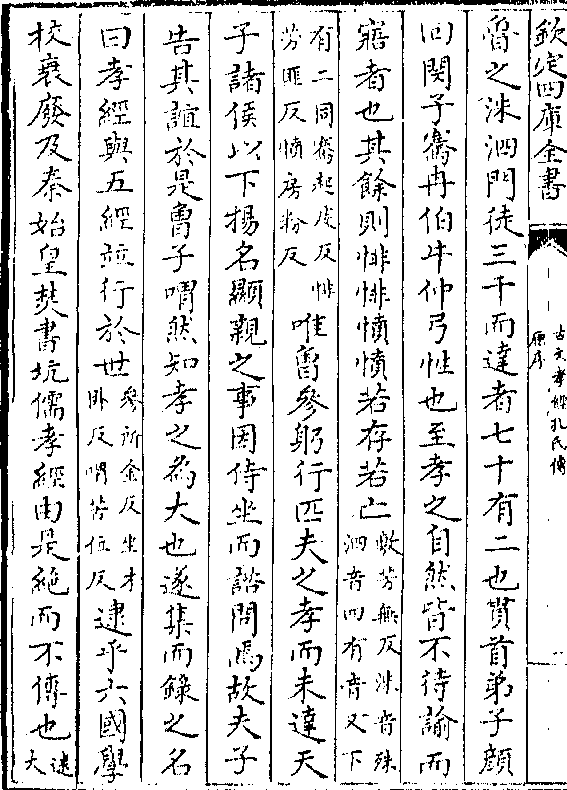 欽定四庫全書
古文孝經孔氏傳
原序
魯之洙泗門徒三千而達者七十有二也貫首弟子顔
回閔子騫冉伯牛仲弓性也至孝之自然皆不待諭而
寤者也其餘則悱悱憤憤若存若亡敷芳無反洙音殊
泗音四有音又下
有二同騫起虔反悱
芳匪反憤房粉反唯曾參躬行匹夫之孝而未達天
子諸侯以下揚名顯親之事因侍坐而諮問焉故夫子
告其誼於是曾子喟然知孝之為大也遂集而錄之名
曰孝經與五經竝行於世參所金反坐才
卧反喟苦位反逮乎六國學
校衰廢及秦始皇焚書坑儒孝經由是絶而不傳也逮
大